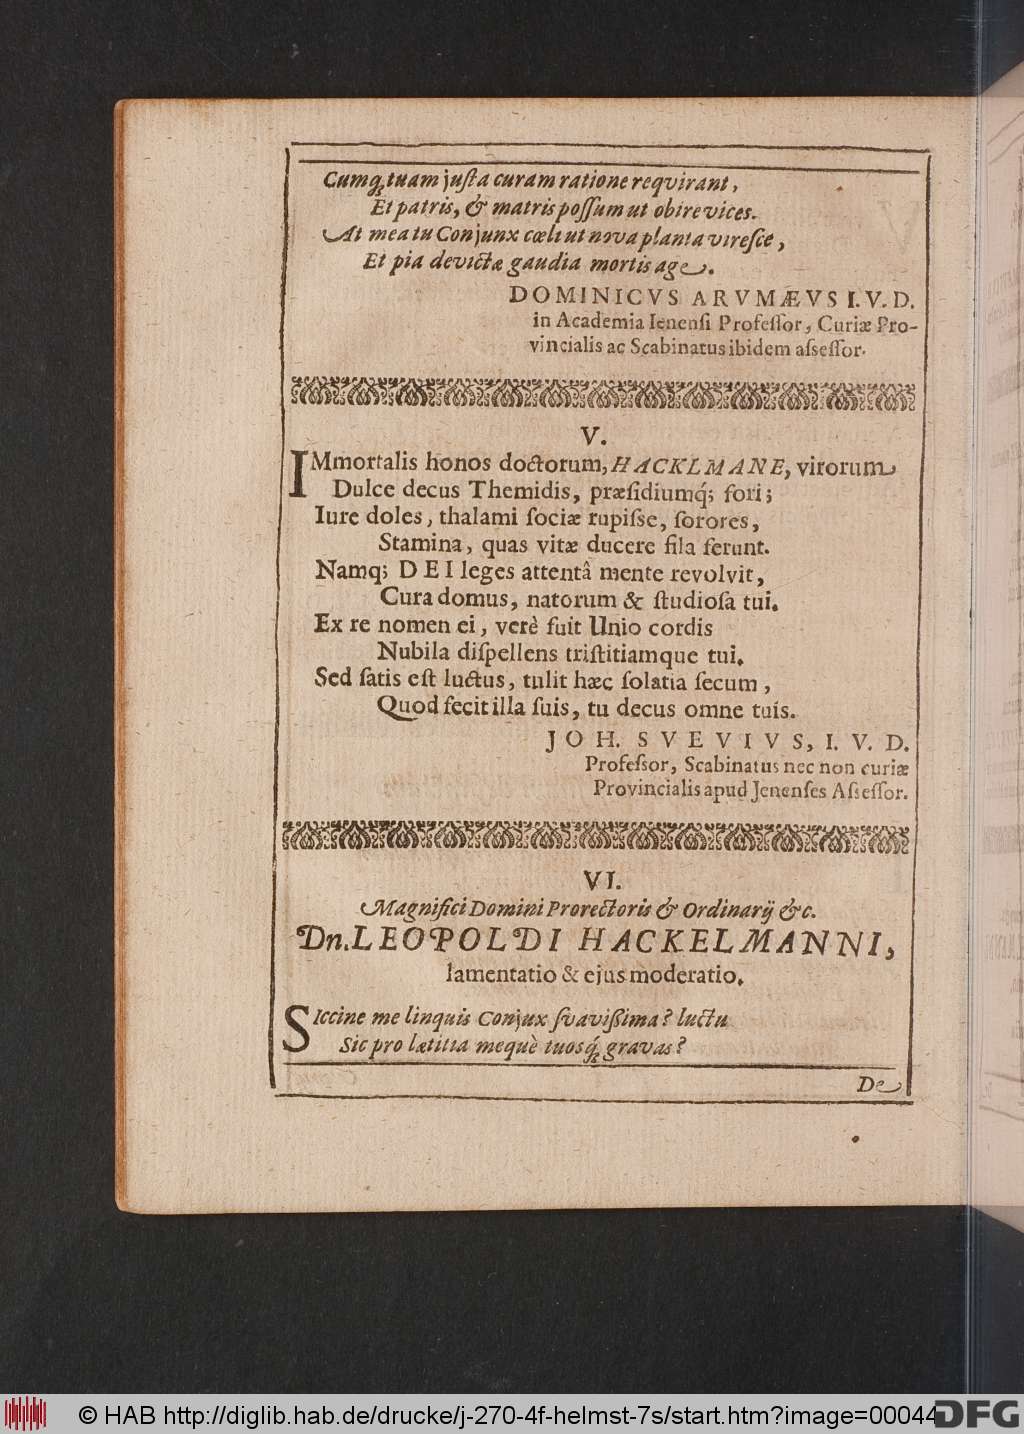 Cumq́ꝫ tuam juſta curam ratione reqvirant,
Et patris, & matris poſſum ut obire vices.
At mea tu Conjunx cœli ut nova planta vireſce,
Et pia devictæ gaudia mortis age.
DOMINICVS ARVMÆVS I. V. D.
in Academia Ienenſi Profeſſor, Curiæ Pro-
vincialis ac Scabinatus ibidem aſseſſor.
V.
IMmortalis honos doctorum, HACKLMANE, virorum
Dulce decus Themidis, præſidiumq́; fori;
Iure doles, thalami ſociæ rupiſse, ſorores,
Stamina, quas vitæ ducere fila ferunt.
Namq; DEI leges attentâ mente revolvit,
Cura domus, natorum & ſtudioſa tui.
Ex re nomen ei, verè fuit Unio cordis
Nubila diſpellens triſtitiamque tui.
Sed ſatis eſt luctus, tulit hæc ſolatia ſecum,
Quod fecit illa ſuis, tu decus omne tuis.
JOH. SVEVIVS, I. V. D.
Profeſsor, Scabinatus nec non curiæ
Provincialis apud Jenenſes Aſseſſor.
VI.
Magnifici Domini Prorectoris & Ordinarij &c.
Dn. LEOPOLDI HACKELMANNI,
lamentatio & ejus moderatio.
SIccine me linquis Conjux ſvavißima? luctu
Sic pro lætitia mequè tuosq́ꝫ gravas?
De
© HAB http://diglib.hab.de/drucke/j-270-4f-helmst-7s/start.htm?image=00044
DFG